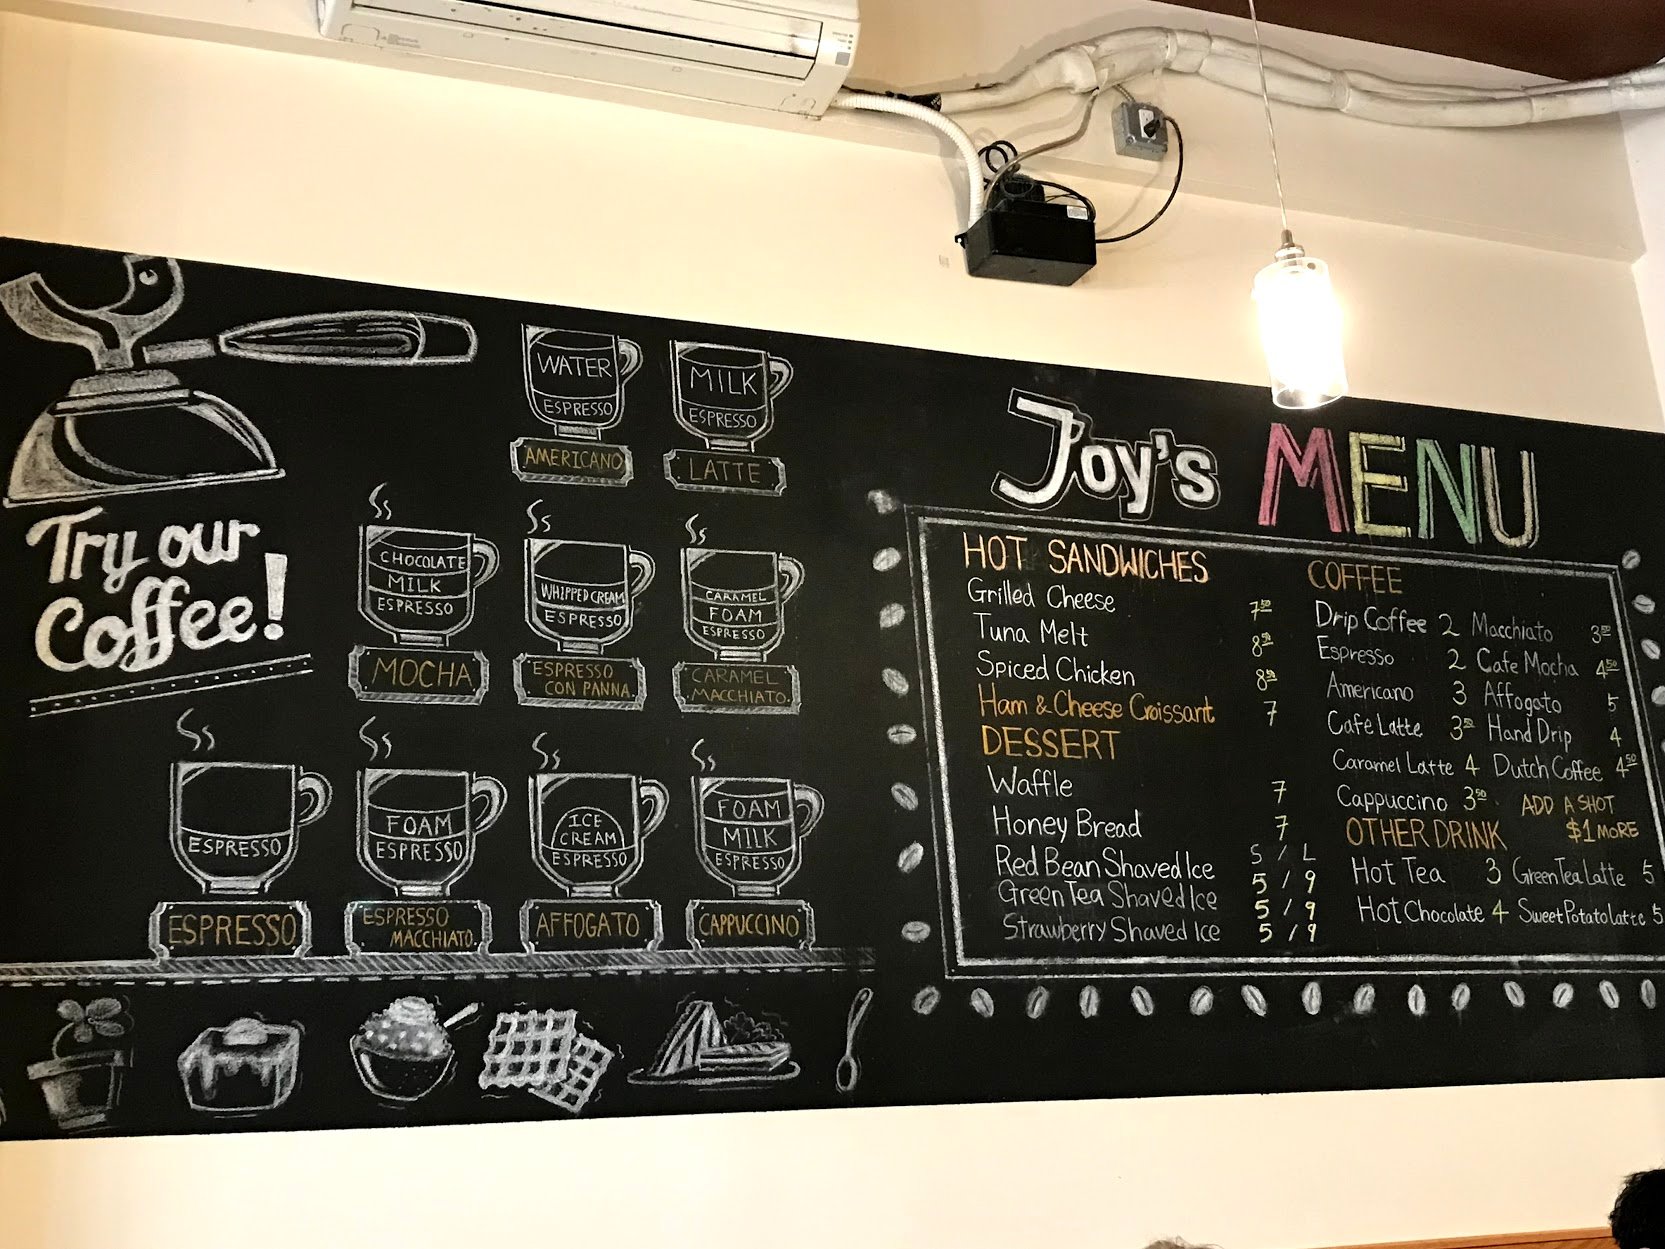 Try our
Coffee!
WATER
ESPRESSO
AMERICANO
MILK
ESPRESSO
LATTE
CHOCOLATE
MILK
ESPRESSO
MOCHA
WHIPPED CREAM
ESPRESSO
ESPRESSO
CON PANNA
CARAMEL
FOAM
ESPRESSO
CARAMEL
MACCHIATO
ESPRESSO
ESPRESSO
FOAM
ESPRESSO
ESPRESSO
MACCHIATO
ICE
CREAM
ESPRESSO
AFFOGATO
FOAM
MILK
ESPRESSO
CAPPUCCINO
Joy's MENU
HOT SANDWICHES
Grilled Cheese 7.50
Tuna Melt 8.50
Spiced Chicken 8.50
Ham & Cheese Croissant 7
DESSERT
Waffle 7
Honey Bread 7
S / L
Red Bean Shaved Ice 5 / 9
Green Tea Shaved Ice 5 / 9
Strawberry Shaved Ice 5 / 9
COFFEE
Drip Coffee 2 Macchiato 3.50
Espresso 2 Cafe Mocha 4.50
Americano 3 Affogato 5
Cafe Latte 3.50 Hand Drip 4
Caramel Latte 4 Dutch Coffee 4.50
Cappuccino 3.50 ADD A SHOT
$1 MORE
OTHER DRINK
Hot Tea 3 Green Tea Latte 5
Hot Chocolate 4 Sweet Potato Latte 5